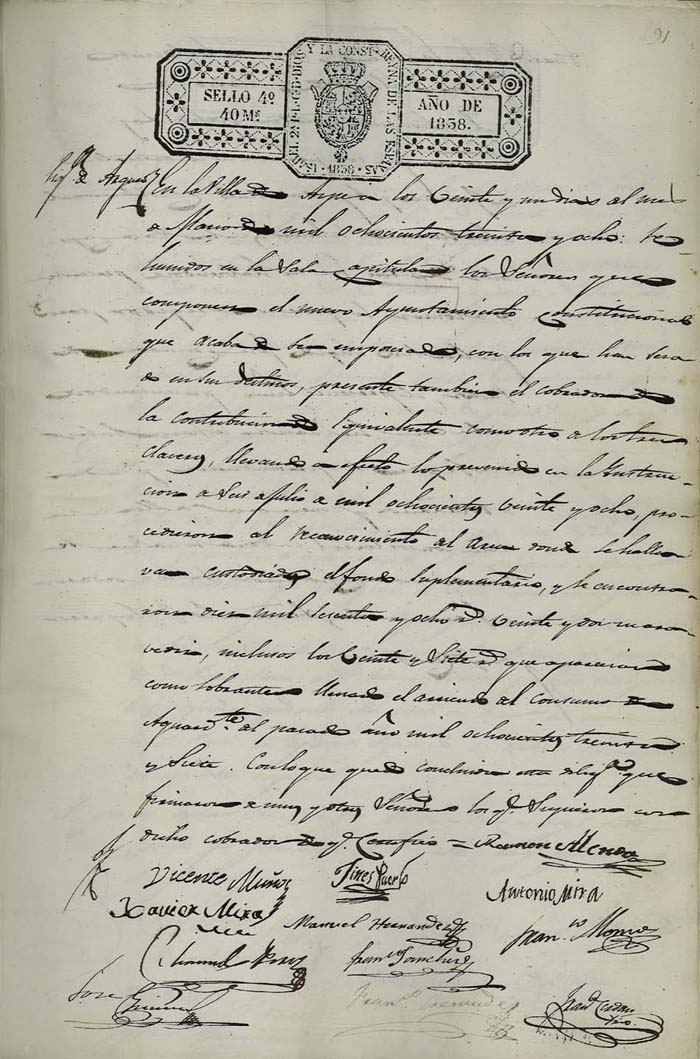 91
SELLO 4º
40 Ms
ISABEL 2ª P. L. G. D. DIOS Y LA CONST. REYNA DE LAS ESPAÑAS
1838
AÑO DE
1838.
de Arqueo
En la Villa de Aspe a los Veinte y un dias del mes
de Marzo de mil ochocientos treinta y ocho: Re-
hunidos en la Sala Capitular los Señores que
componen el nuevo Ayuntamiento Constitucional
que acaba de ser emposecionado, con los que han
en sus destinos, presente tambien el cobrador de
la contribucion de Equivalente como otro de los tres
claveros, llevando a efecto lo prevenido en la Instruc-
cion de Seis de Julio de mil ochocientos veinte y ocho, pro-
cedieron al reconocimiento del Arca donde se halla-
van custodiados el fondo Suplementario, y se encontra-
ron diez mil y ocho rs. Veinte y dos mara-
vedis, inclusos los Veinte y Siete rs que aparecieron
como Sobrantes del consumo de
Aguardte. del pasado año mil ochocientos treinta
y Siete. Con lo que quedó concluida esta diliga. que
firmaron de nuevos y otros Señores los qe. Supieron con
dicho cobrador de qe. Certifico =
Ramon Alenda
Vicente Muñoz
Gines Puerto
Antonio Mira
Xavier Mira
Manuel Hernandez
Franco.
Manuel Perez
Franco. Sanchez
Jose
Franco.
Franco.